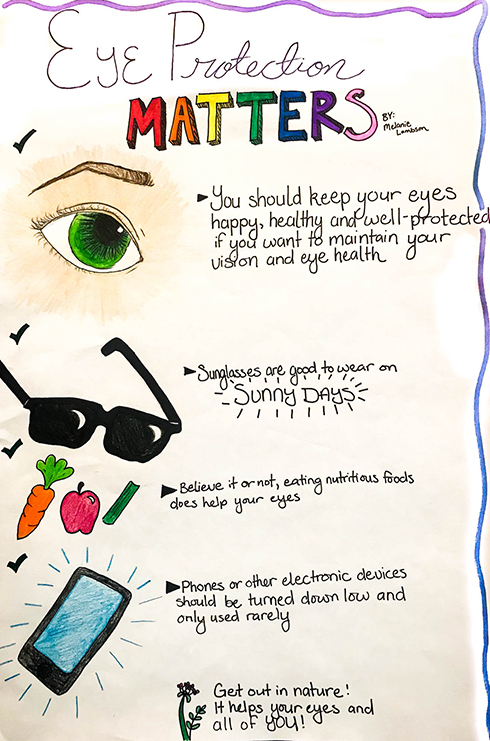 Eye Protection
MATTERS
BY:
Melanie
Lambson
You should keep your eyes
happy, healthy and well-protected
if you want to maintain your
vision and eye health
Sunglasses are good to wear on
SUNNY DAYS
Believe it or not, eating nutritious foods
does help your eyes
Phones or other electronic devices
should be turned down low and
only used rarely
Get out in nature!
It helps your eyes and
all of YOU!